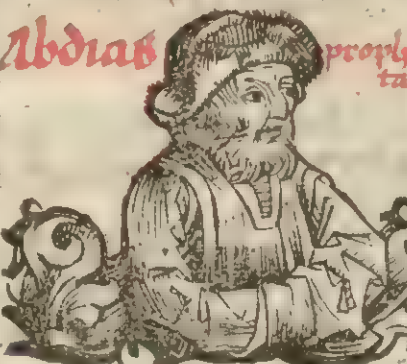 Abdias prophe
ta